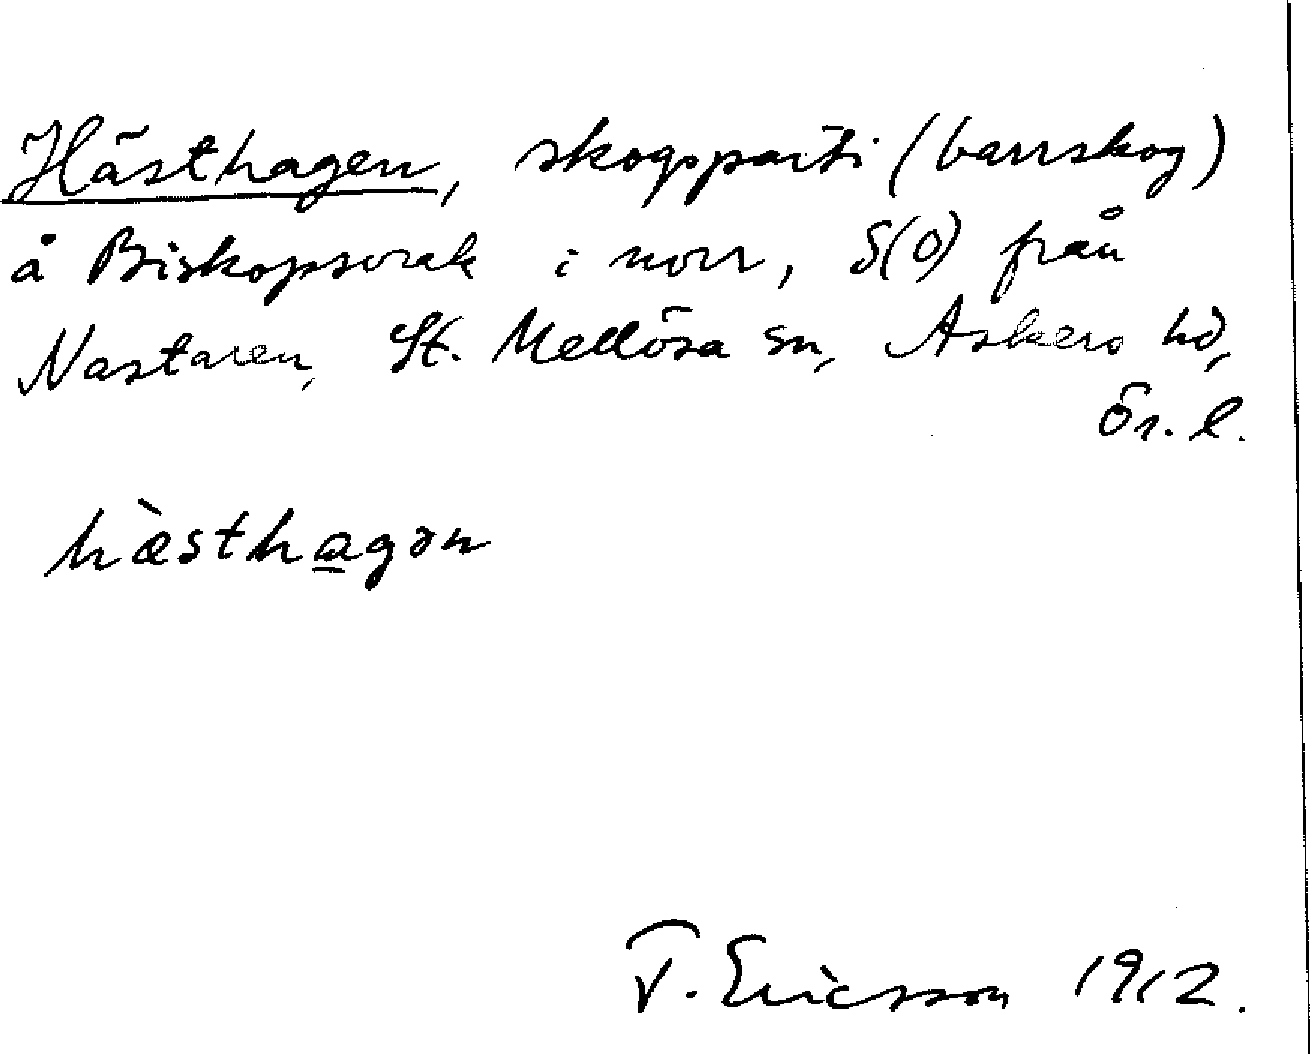 Hästhagen, skogsparti (barrskog)
å Biskopsvrak i norr, S(O) från
Nastaren, St. Mellösa sn, Askers hd,
Ör. l.
hæ̀sthagən
T. Ericsson 1912.